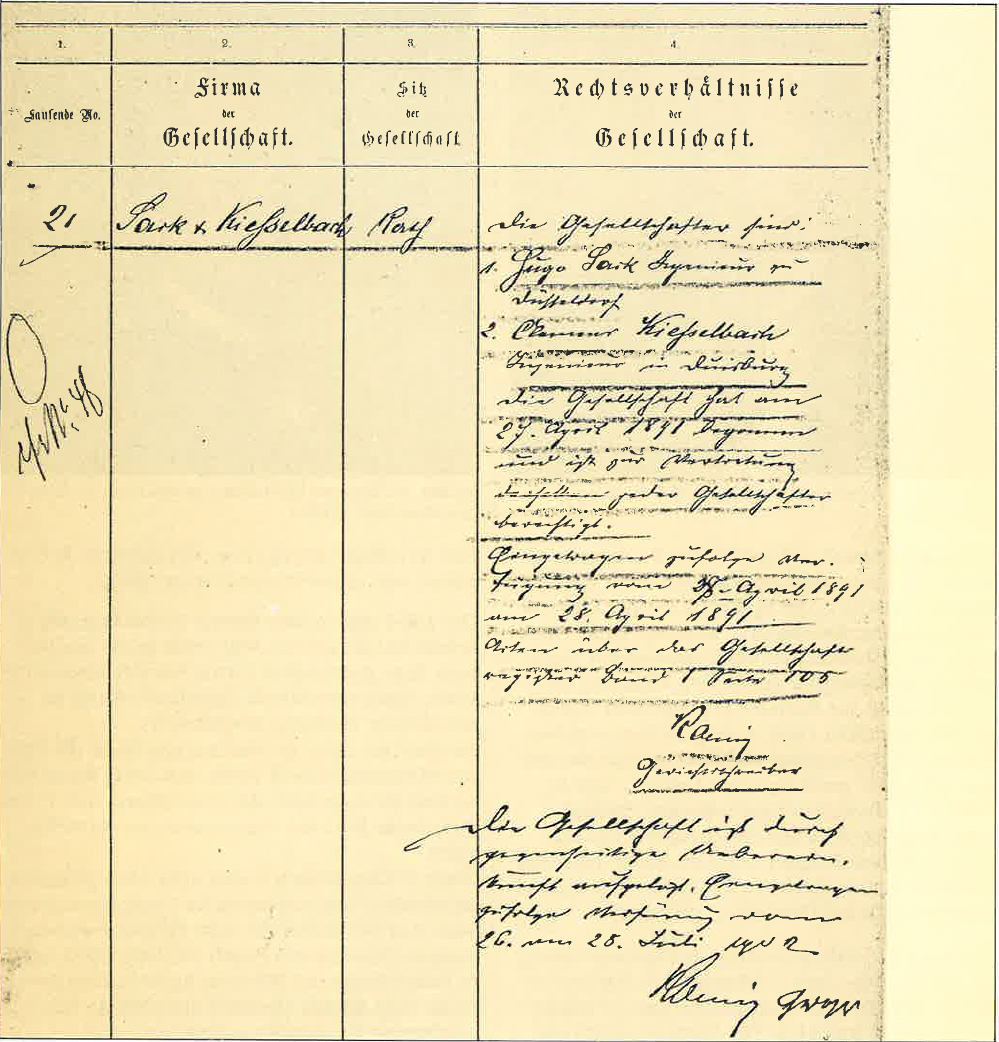 1.
2.
3.
4.
Laufende No.
Firma
der
Gesellschaft.
Sitz
der
Gesellschaft
Rechtsverhältnisse
der
Gesellschaft.
21
Sack & Kiesselbach
Rath
Die Gesellschafter sind:
1. Hugo Sack Ingenieur zu
Düsseldorf
2. Clemens Kiesselbach
Ingenieur in Duisburg
Die Gesellschaft hat am
27. April 1891 begonnen
und ist zur Vertretung
derselben jeder Gesellschafter
berechtigt.
Eingetragen zufolge Ver-
fügung vom April 1891
am 28. April 1891
Akten über das Gesellschafts
register Band 1 Seite 105
Koenig
Gerichtsschreiber
Die Gesellschaft ist durch
gegenseitige Ueberein-
kunft aufgelöst. Eingetragen
zufolge Verfügung vom
26. am 28. Juli 1902
Koenig
No. 48